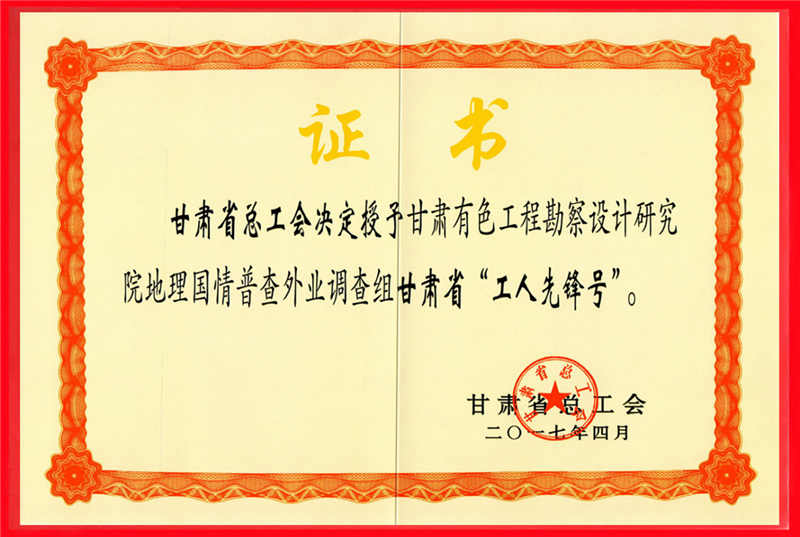 证书
甘肃省总工会决定授予甘肃有色工程勘察设计研究
院地理国情普查外业调查组甘肃省“工人先锋号”。
甘肃省总工会
甘肃省总工会
二〇一七年四月